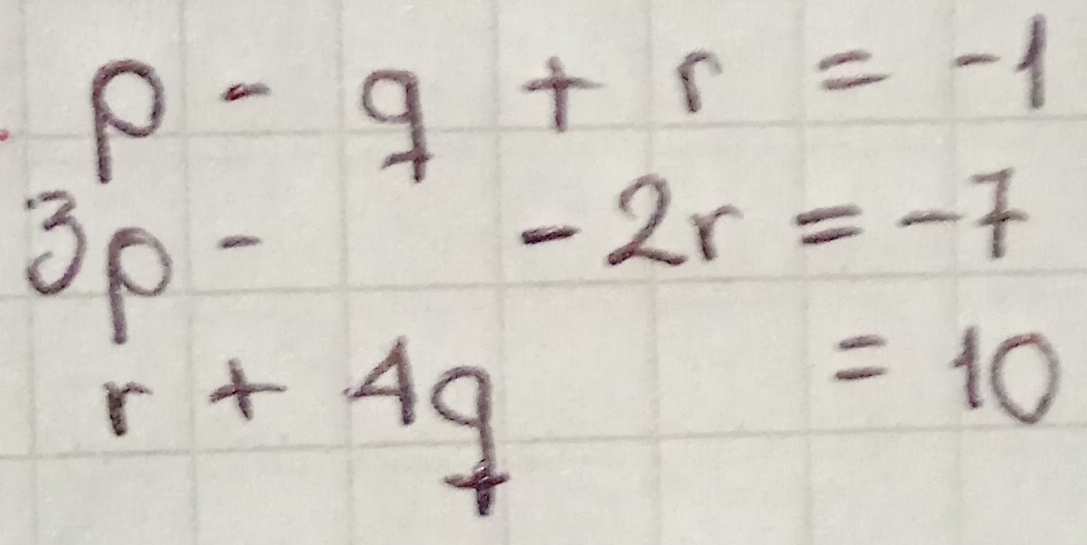 p - q + r = -1
3p - - 2r = -7
r + 4q = 10